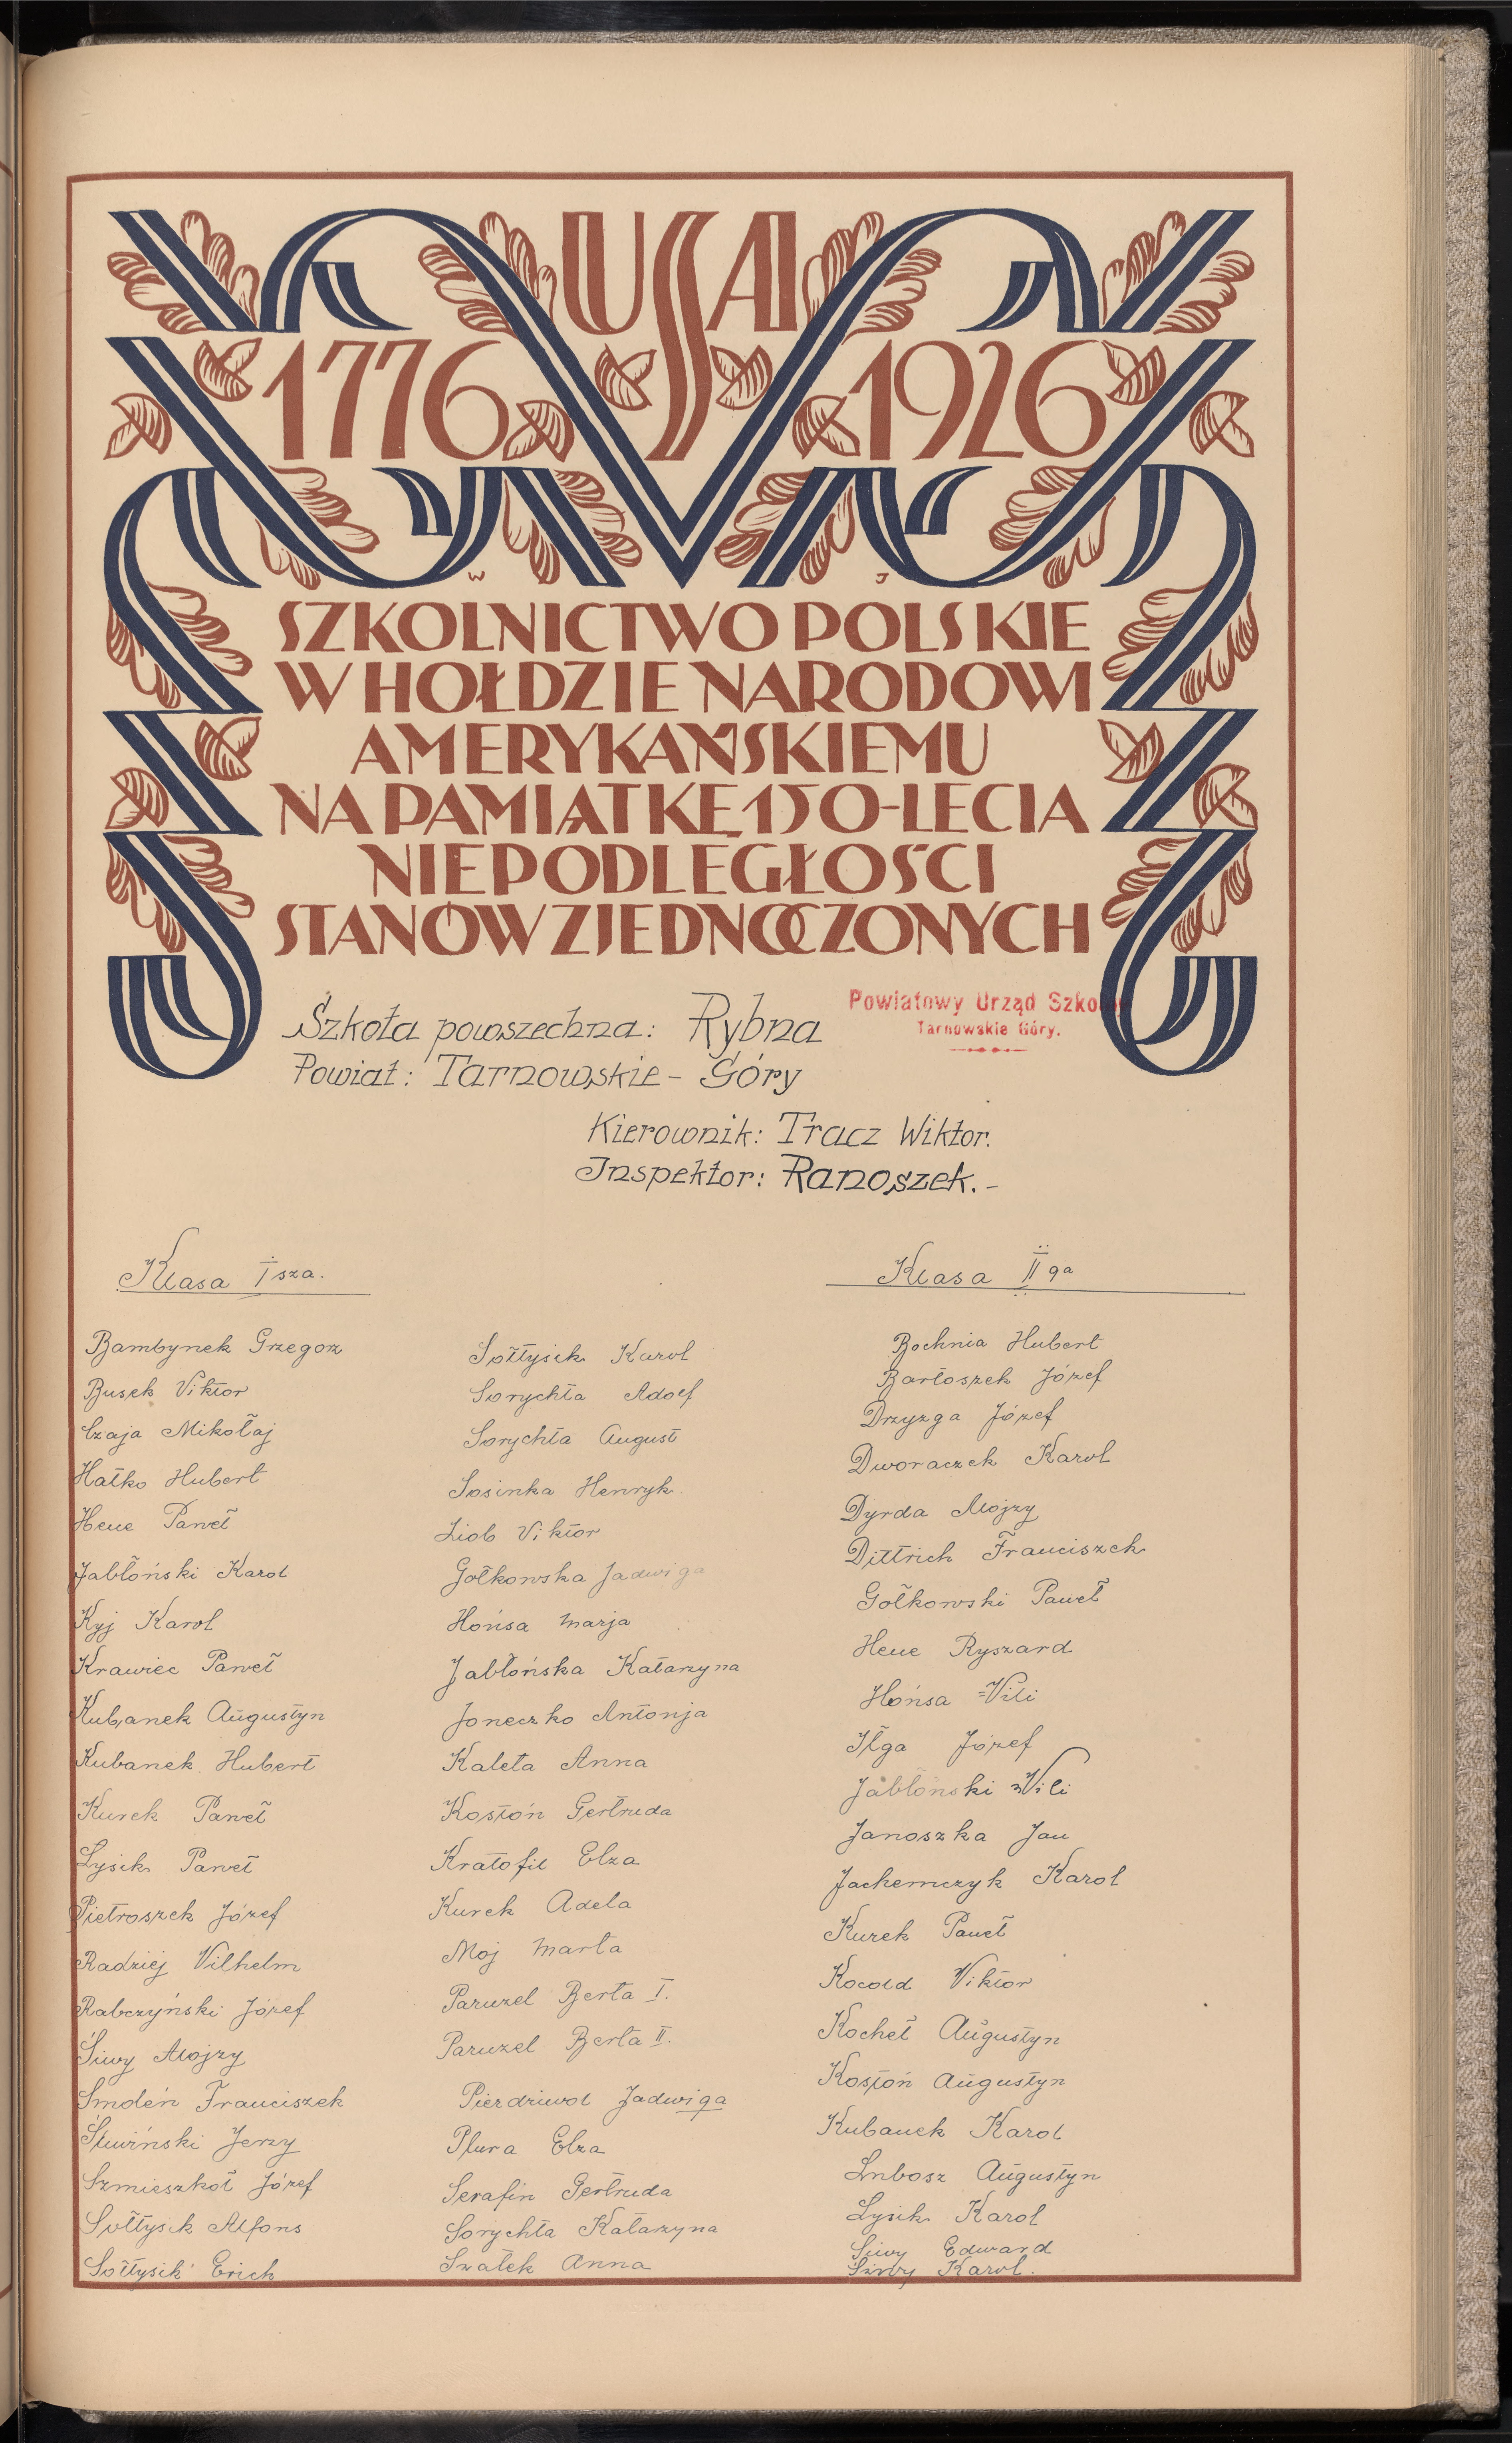 USA
1776 1926
W J
SZKOLNICTWO POLSKIE
W HOŁDZIE NARODOWI
AMERYKAŃSKIEMU
NA PAMIĄTKĘ 150-LECIA
NIEPODLEGŁOŚCI
STANÓW ZJEDNOCZONYCH
Szkoła powszechna: Rybna
Powiat: Tarnowskie-Góry
Powiatowy Urząd Szkolny
Tarnowskie Góry.
Kierownik: Tracz Wiktor.
Inspektor: Ranoszek.-
Klasa I sza.
Bambynek Grzegorz
Busek Viktor
Czaja Mikołaj
Hatko Hubert
Heue Paweł
Jabłoński Karol
Kyj Karol
Krawiec Paweł
Kubanek Augustyn
Kubanek Hubert
Kurek Paweł
Lysik Paweł
Pietroszek Józef
Radziej Vilhelm
Rabczyński Józef
Siwy Alojzy
Smoleń Franciszek
Śliwiński Jerzy
Szmieszkoł Józef
Sołtysik Alfons
Sołtysik Erich
Sołtysik Karol
Sorychta Adolf
Sorychta August
Sosinka Henryk
Ziob Viktor
Gołkowska Jadwiga
Hońsa Marja
Jabłońska Katarzyna
Joneczko Antonja
Kaleta Anna
Kostoń Gertruda
Kratofil Elza
Kurek Adela
Moj Marta
Paruzel Berta I.
Paruzel Berta II.
Pierdziwol Jadwiga
Plura Elza
Serafin Gertruda
Sorychta Katarzyna
Szałek Anna
Klasa II ga
Bochnia Hubert
Bartoszek Józef
Drzyzga Józef
Dworaczek Karol
Dyrda Alojzy
Dittrich Franciszek
Gołkowski Paweł
Heue Ryszard
Hońsa Vili
Ilga Józef
Jabłoński Vili
Janoszka Jan
Jachemczyk Karol
Kurek Paweł
Kocold Viktor
Kocheł Augustyn
Kostoń Augustyn
Kubanek Karol
Lubosz Augustyn
Lysik Karol
Siwy Edward
Siwy Karol.